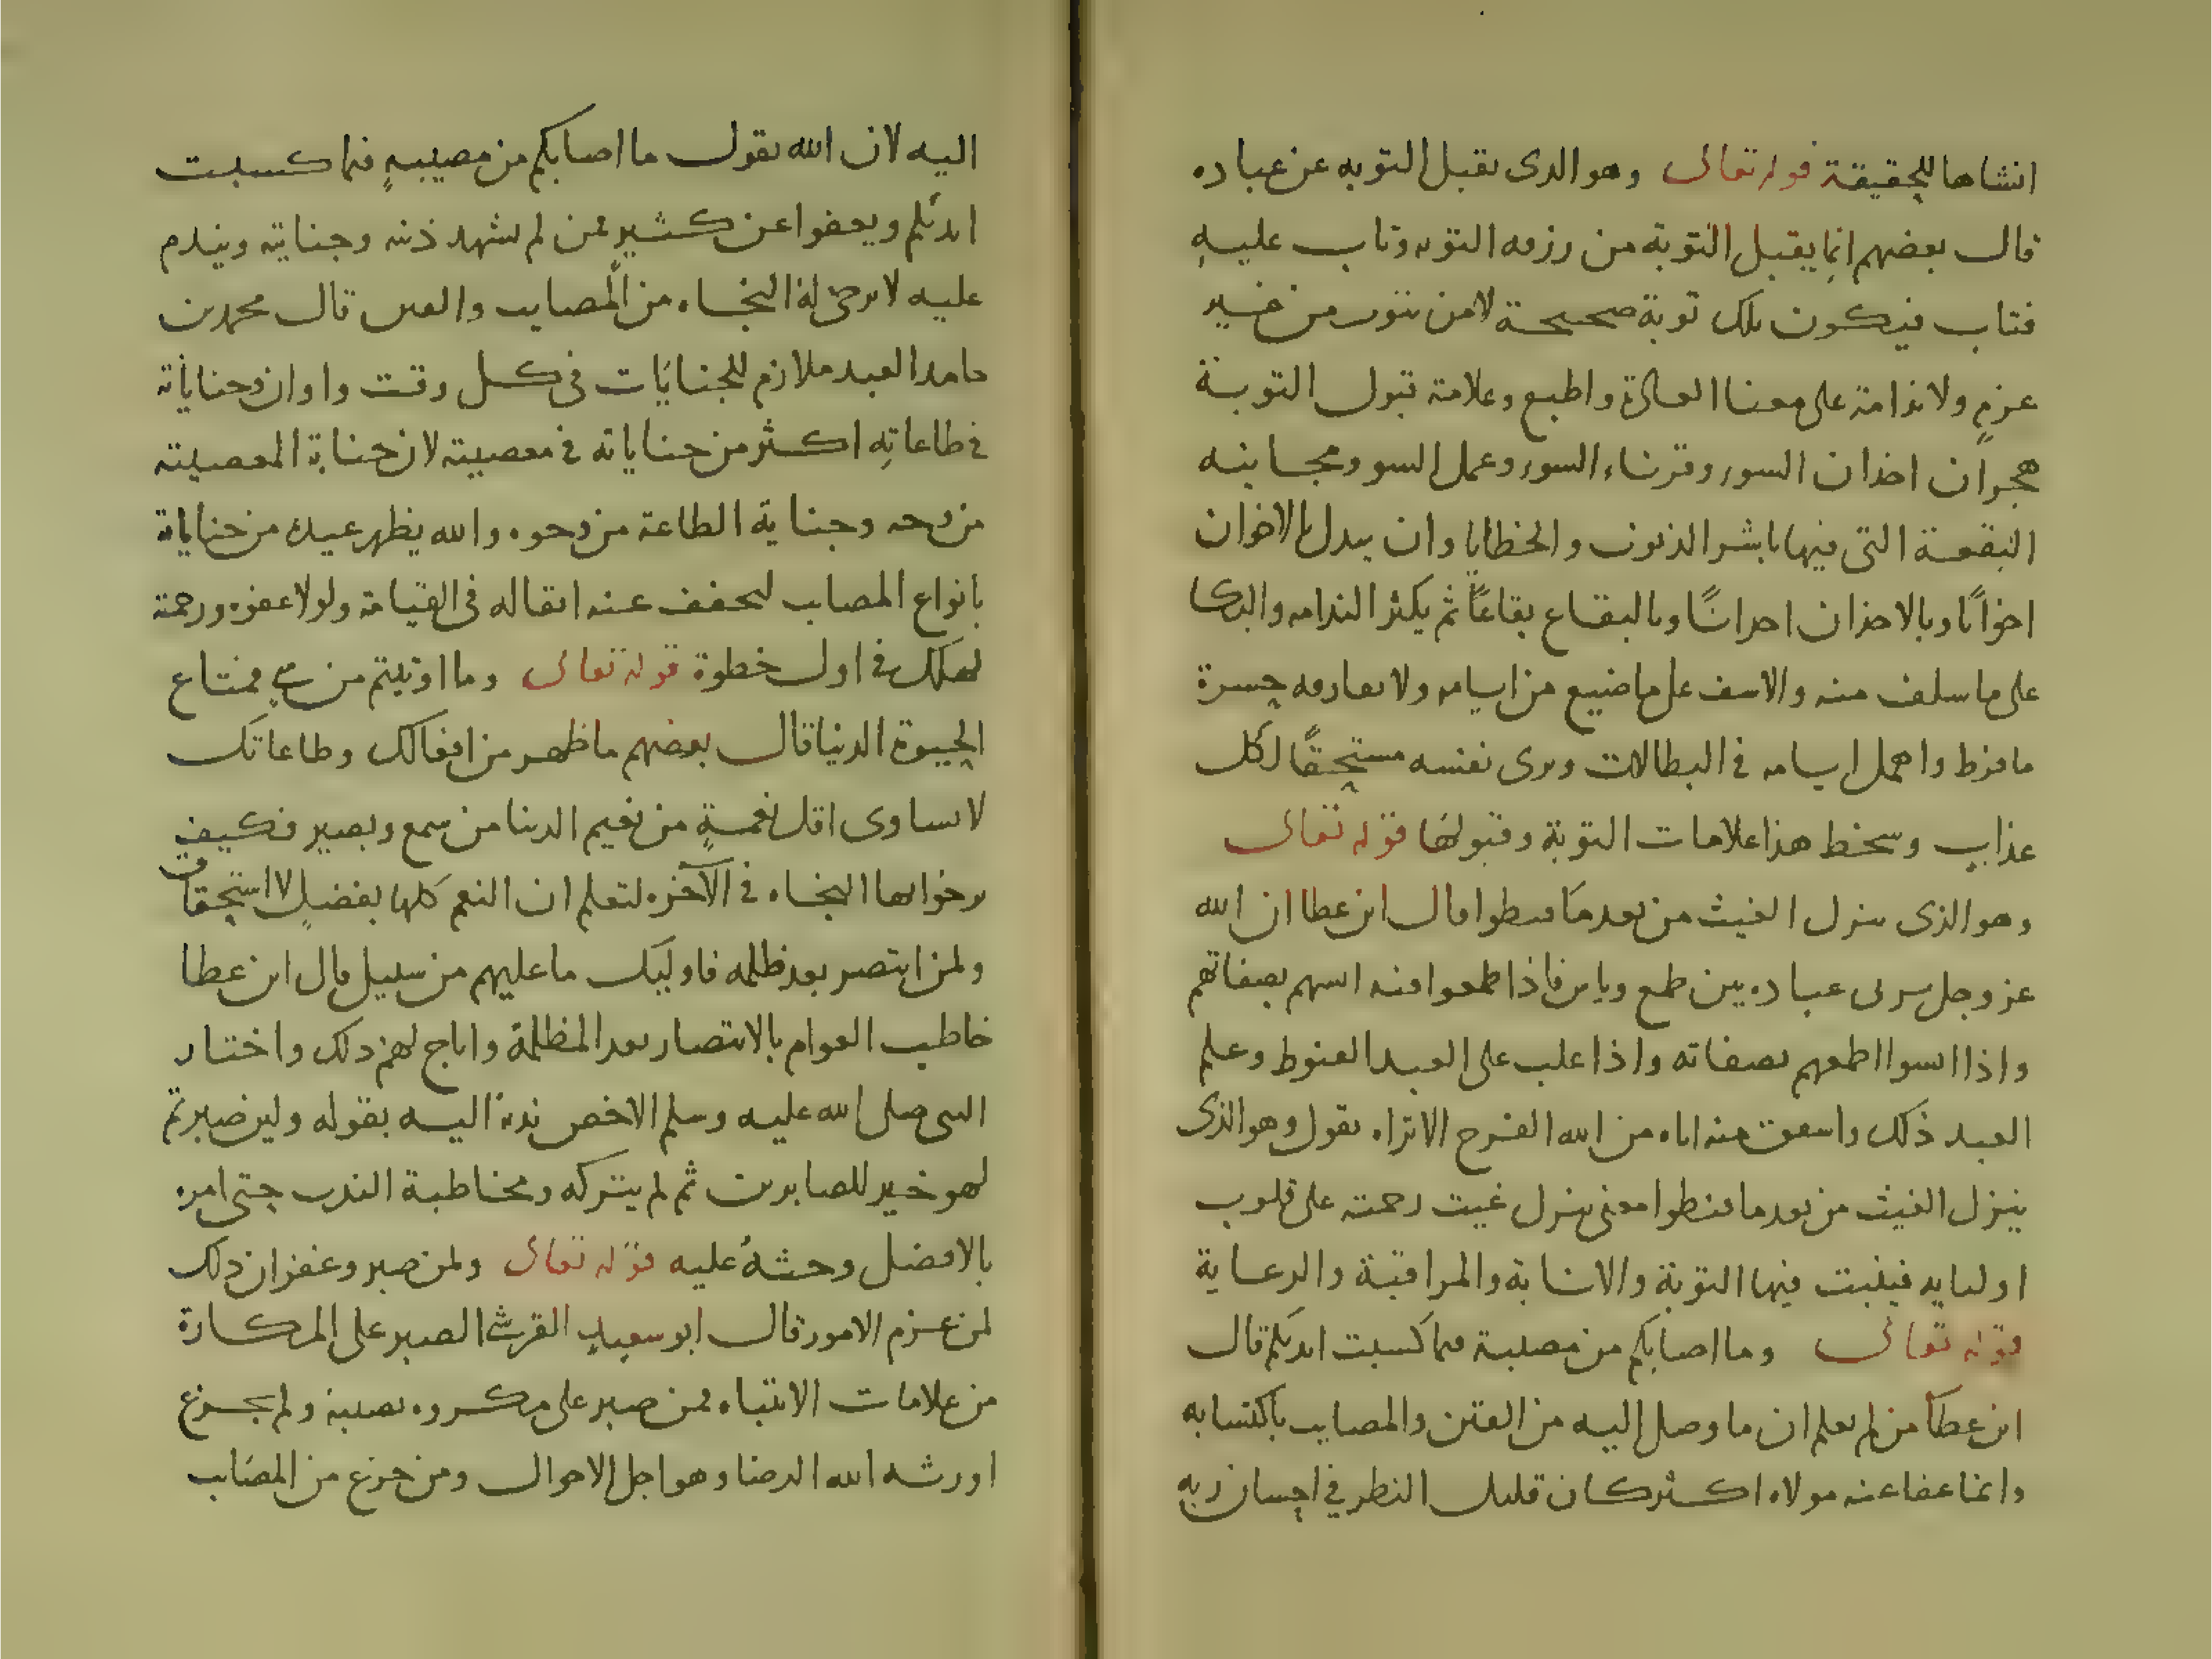 انشاها للحقيقة قوله تعالى وهو الذى يقبل التوبه عن عباده
قال بعضهم انما يقبل التوبة من رزقه التوبه وتاب عليه
فتاب فيكون بلك توبة صحيحة لا من يتوب من غير
عزم ولا ندامة على معنا العادة واطبع وعلامة قبول التوبة
هجران اخدان السوء وقرناء السوء وعمل السو ومجانبه
البقعة التى فيها باشر الذنوب والخطايا وان يبدل بالاخوان
اخوانا وبالاخذان اخدانا وبالبقاع بقاعا ثم يكثر الندامه والبكا
على ما سلف منه والاسف على ما ضيع من ايامه ولا يفارقه حسرة
ما فرط واهمل ايامه فى البطالات ويرى نفسه مستحقا لكل
عذاب وسخط هذا علامات التوبة وقبولها قوله تعالى
وهو الذى ينزل الغيث من بعد ما قنطوا قال ابن عطا ان الله
عز وجل يربى عباده بين طمع وياس فاذا طمعوا فيه ايسهم بصفاتهم
واذا ايسوا اطمعهم بصفاته واذا غلب على العبد القنوط وعلم
العبد ذلك واشفق منه اتاه من الله الفرج الا تراه يقول وهو الذى
ينزل الغيث من بعد ما قنطوا معنى ينزل غيث رحمته على قلوب
اوليايه فينبت فيها التوبة والانابة والمراقبة والرعاية
قوله تعالى وما اصابكم من مصيبة فبما كسبت ايديكم قال
ابن عطا من لم يعلم ان ما وصل اليه من الفتن والمصايب باكتسابه
وانما عفا عنه مولاه اكثر كان قليل النظر فى احسان ربه
اليه لان الله يقول ما اصابكم من مصيبة فبما كسبت
ايديكم ويعفوا عن كثير فمن لم يشهد ذنبه وجنايته ويندم
عليه لا يرجى له النجاه من المصايب والفتن قال محمد بن
حامد العبد ملازم للجنايات فى كل وقت واوان وجناياته
فى طاعاته اكثر من جناياته فى معصيته لان جناية المعصيته
من وجه وجناية الطاعة من وجوه والله يظهر عبده من جناياته
بانواع المصاب ليخفف عنه اثقاله فى القيامة ولولا عفوه ورحمته
لهلك فى اول خطوة قوله تعالى وما اوتيتم من شى فمتاع
الحيوة الدنيا قال بعضهم ما ظهر من افعالك وطاعاتك
لا يساوى اقل نعمة من نعيم الدنيا من سمع وبصير فكيف
يرجوا بها النجاه فى الآخره لتعلم ان النعم كلها بفضل لا استحقاق
ولمن انتصر بعد ظلمه فاوليك ما عليهم من سبيل قال ابن عطا
خاطب العوام بالانتصار بعد المظلمة واباح لهم ذلك واختار
النبى صلى الله عليه وسلم الاخص ندبه اليه بقوله ولين صبرتم
لهو خير للصابرين ثم لم يتركه ومخاطبة الندب حتى امره
بالافضل وحثه عليه قوله تعالى ولمن صبر وغفر ان ذلك
لمن عزم الامور قال ابو سعيد القرشى الصبر على المكارة
من علامات الانتباه فمن صبر على مكروه يصيبه ولم يجزع
اورثه الله الرضا وهو اجل الاحوال ومن جزع من المصايب